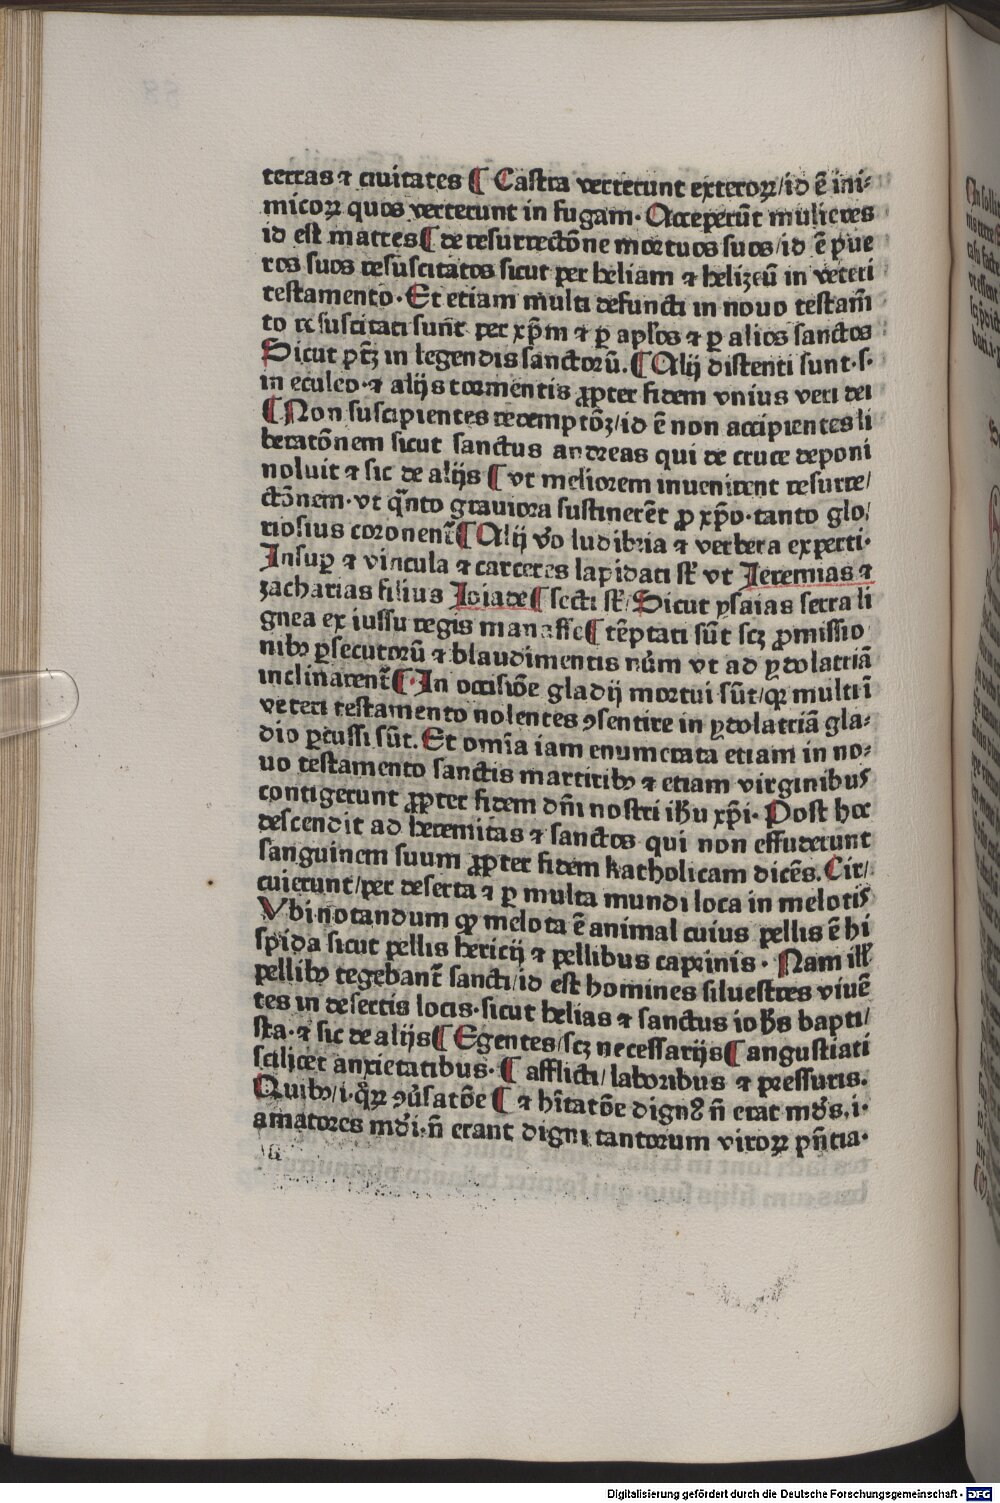 terras ⁊ ciuitates ¶ Castra verterunt exteroꝝ/id ē ini⸗
micoꝝ quos verterunt in fugam. Acceperūt mulieres
id est matres¶ de resurrectōne mortuos suos/id ē pue
ros suos resuscitatos sicut per heliam ⁊ helizeū in veteri
testamento. Et etiam multi defuncti in nouo testam̄
to resuscitati sunt per xp̄m ⁊ ꝑ apl̄os ⁊ ꝑ alios sanctos
Sicut ptꝫ in legendis sanctorū. ¶ Alij distenti sunt.s.
in eculeo.⁊ alijs tormentis ꝓpter fidem vnius veri dei
¶ Non suscipientes redemptōꝫ/id ē non accipientes li
beratōnem sicut sanctus andreas qui de cruce deponi
noluit ⁊ sic de alijs ¶ vt meliorem inuenirent resurre/
ctōnem.vt qn̄to grauiora sustinerēt ꝓ xp̄o.tanto glo/
riosius coronent̄ ¶ Alij v̄o ludibria ⁊ verbera experti.
Insuꝑ ⁊ vincula ⁊ carceres lapidati st̄ vt Jeremias ⁊
zacharias filius Joiade ¶ secti st̄/Sicut ysaias serra li
gnea ex iussu regis manasse ¶ tēptati sūt scꝫ ꝓmissio
nibꝰ ꝑsecutorū ⁊ blandimentis nim̄ vt ad ydolatriā
inclinarent̄ ¶ In occisiōe gladij mortui sūt/qꝫ multi ī
veteri testamento nolentes ꝯsentire in ydolatriā gla⸗
dio ꝑcussi sūt. Et omīa iam enumerata etiam in no⸗
uo testamento sanctis martiribꝰ ⁊ etiam virginibus
contigerunt ꝓpter fidem dn̄i nostri ih̄u xp̄i. Post hoc
descendit ad heremitas ⁊ sanctos qui non effuderunt
sanguinem suum ꝓpter fidem katholicam dicēs. Cir/
cuierunt/per deserta ⁊ ꝑ multa mundi loca in melotis
Vbi notandum qꝫ melota ē animal cuius pellis ē hi
spida sicut pellis hericij ⁊ pellibus caprinis. Nam ill̄
pellibꝰ tegebant̄ sancti/id est homines siluestres viuē
tes in desertis locis.sicut helias ⁊ sanctus ioh̄s bapti/
sta.⁊ sic de alijs ¶ Egentes/scꝫ necessarijs ¶ angustiati
scilicet anxietatibus. ¶ afflicti/laboribus ⁊ pressuris.
Quibꝰ/i.qr̄ꝝ ꝯūsatōe ¶ ⁊ hītatōe dignꝰ n̄ erat mūds.i.
amatores mūdi.n̄ erant digni tantorum viroꝝ pn̄tia.
Digitalisierung gefördert durch die Deutsche Forschungsgemeinschaft - DFG